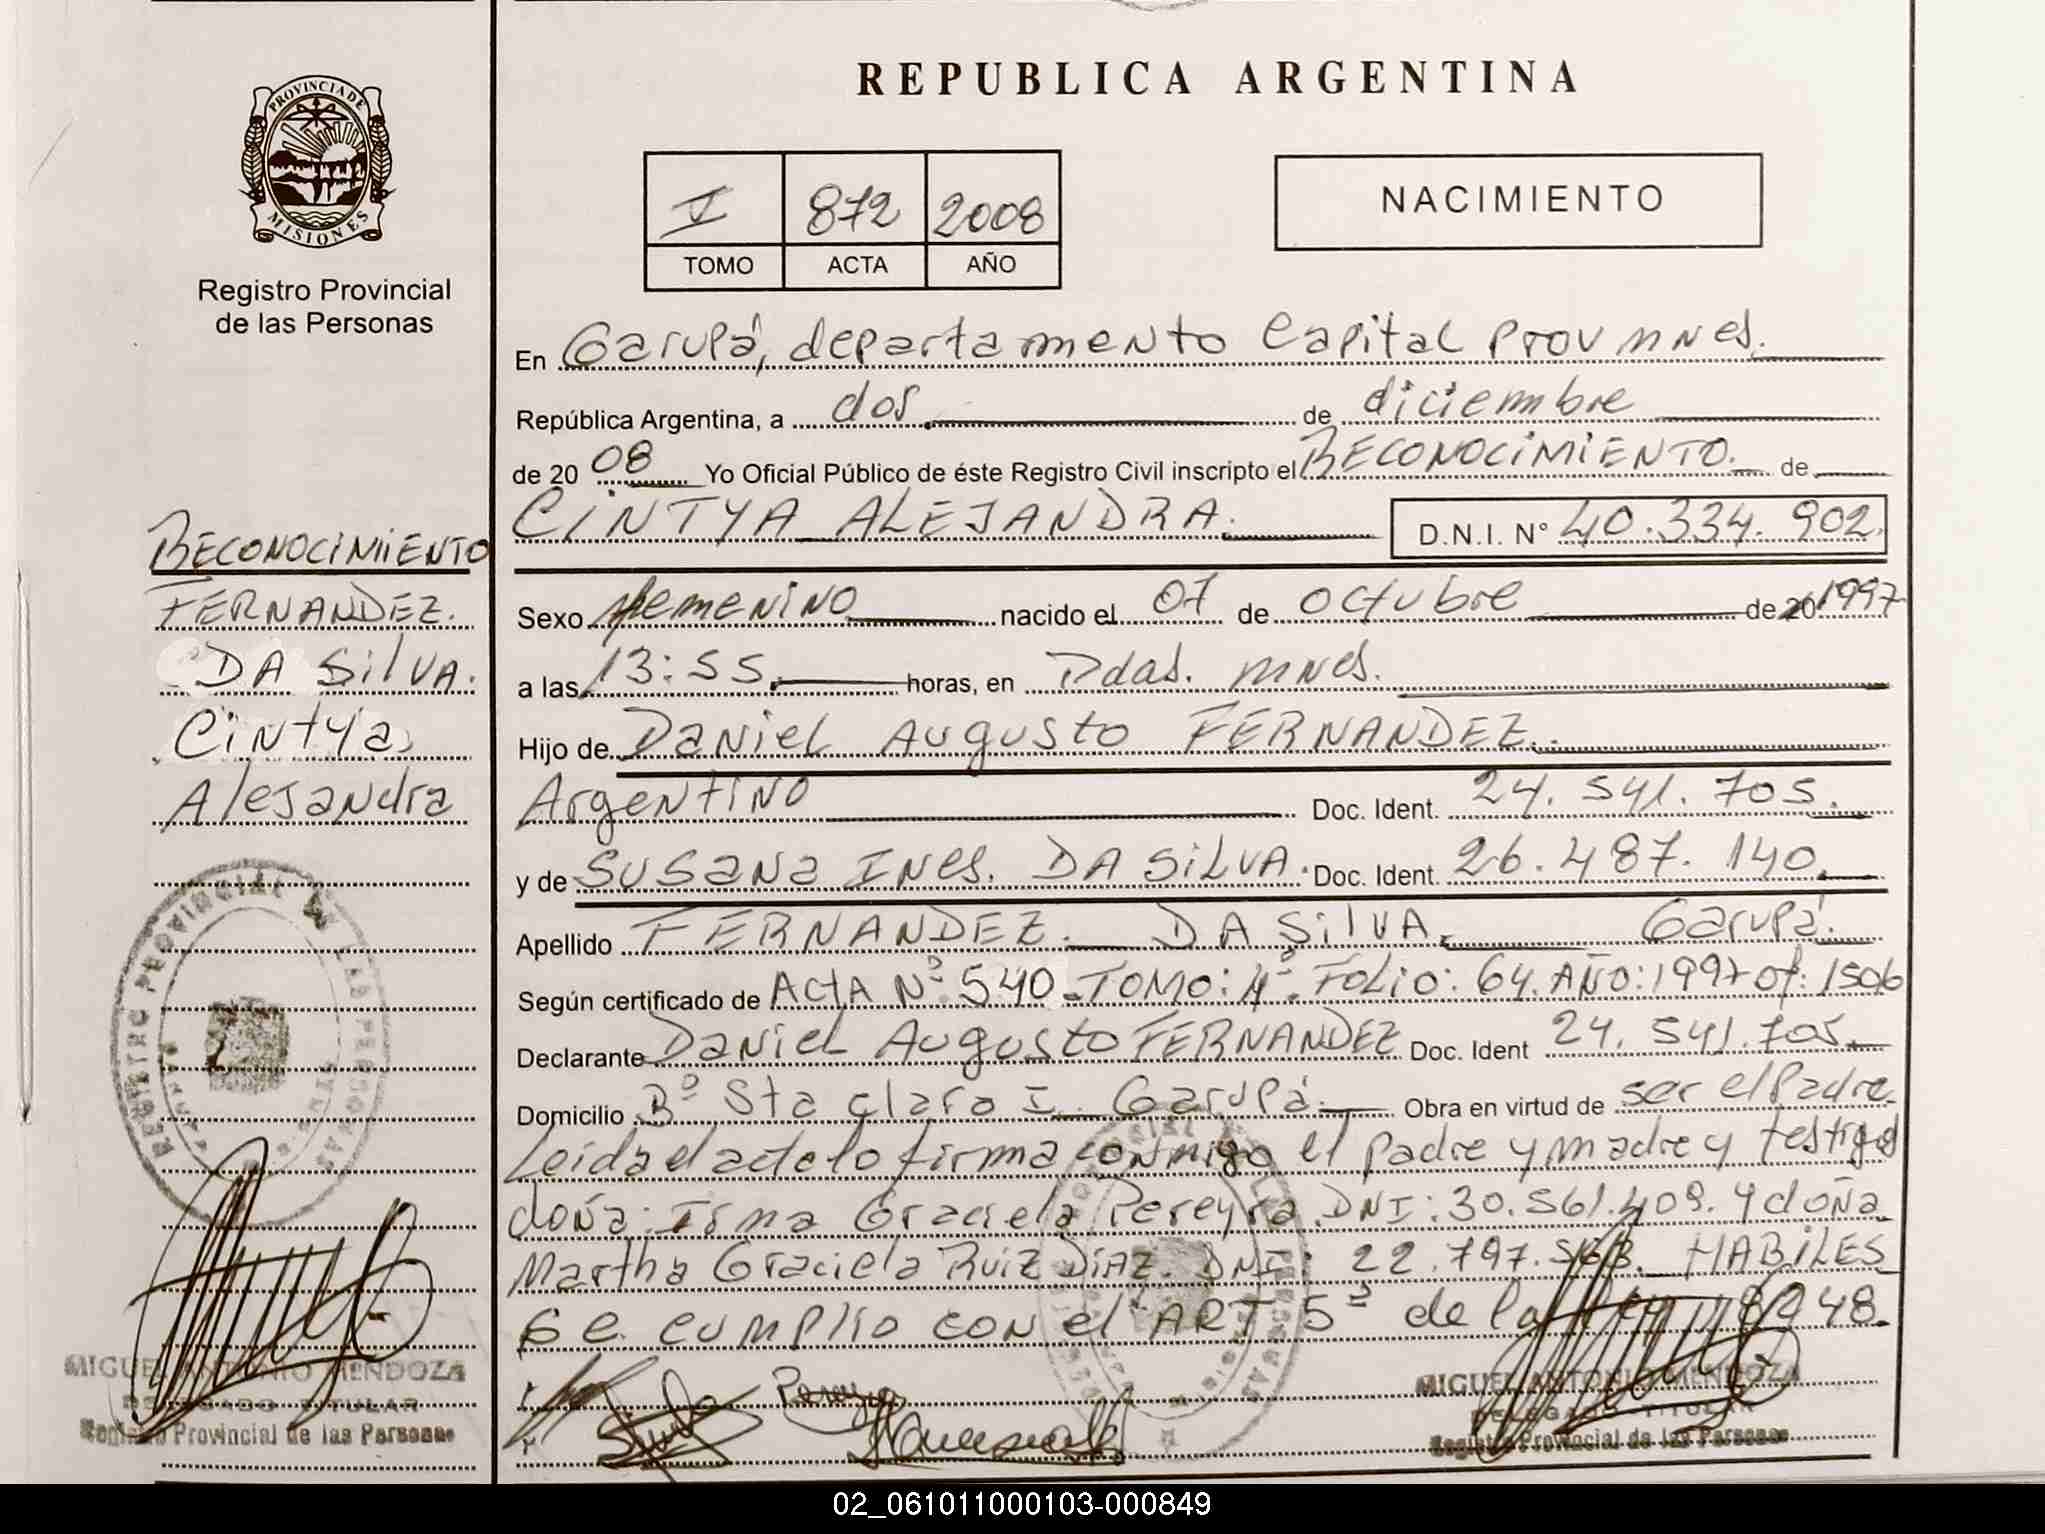 REPUBLICA ARGENTINA
PROVINCIA DE
MISIONES
Registro Provincial
de las Personas
I 872 2008
TOMO ACTA AÑO
NACIMIENTO
En Garupá, departamento Capital Prov mnes.
República Argentina, a dos de diciembre
de 20 08 Yo Oficial Público de éste Registro Civil inscripto el RECONOCIMIENTO. de
CINTYA ALEJANDRA. D.N.I. N° 40.334.902.
Sexo femenino nacido el 07 de octubre de 20 1997
a las 13:55. horas, en Pdas. mnes.
Hijo de Daniel Augusto FERNANDEZ.
Argentino Doc. Ident. 24.541.705.
y de SUSANA INES. DA SILVA. Doc. Ident. 26.487.140.
Apellido FERNANDEZ. DA SILVA. Garupá.
Según certificado de ACTA Nº 540. TOMO: 4º. FOLIO: 64. AÑO: 1997 of: 1506
Declarante Daniel Augusto FERNANDEZ Doc. Ident 24.541.705.
Domicilio Bº Sta clara I Garupá. Obra en virtud de ser el Padre
Leida el acta lo firma conmigo el padre y madre y testigos
doña: Irma Graciela Pereyra. DNI: 30.561.409. y doña
Martha Graciela Ruiz Diaz. DNI: 22.797.563. HABILES
se cumplio con el ART 5º de la
RECONOCIMIENTO
FERNANDEZ.
DA SILVA.
Cintya
Alejandra
REGISTRO PROVINCIAL DE LAS PERSONAS
MIGUEL ANTONIO MENDOZA
DELEGADO TITULAR
Registro Provincial de las Personas
Pereyra
MIGUEL ANTONIO MENDOZA
DELEGADO TITULAR
Registro Provincial de las Personas
02_061011000103-000849